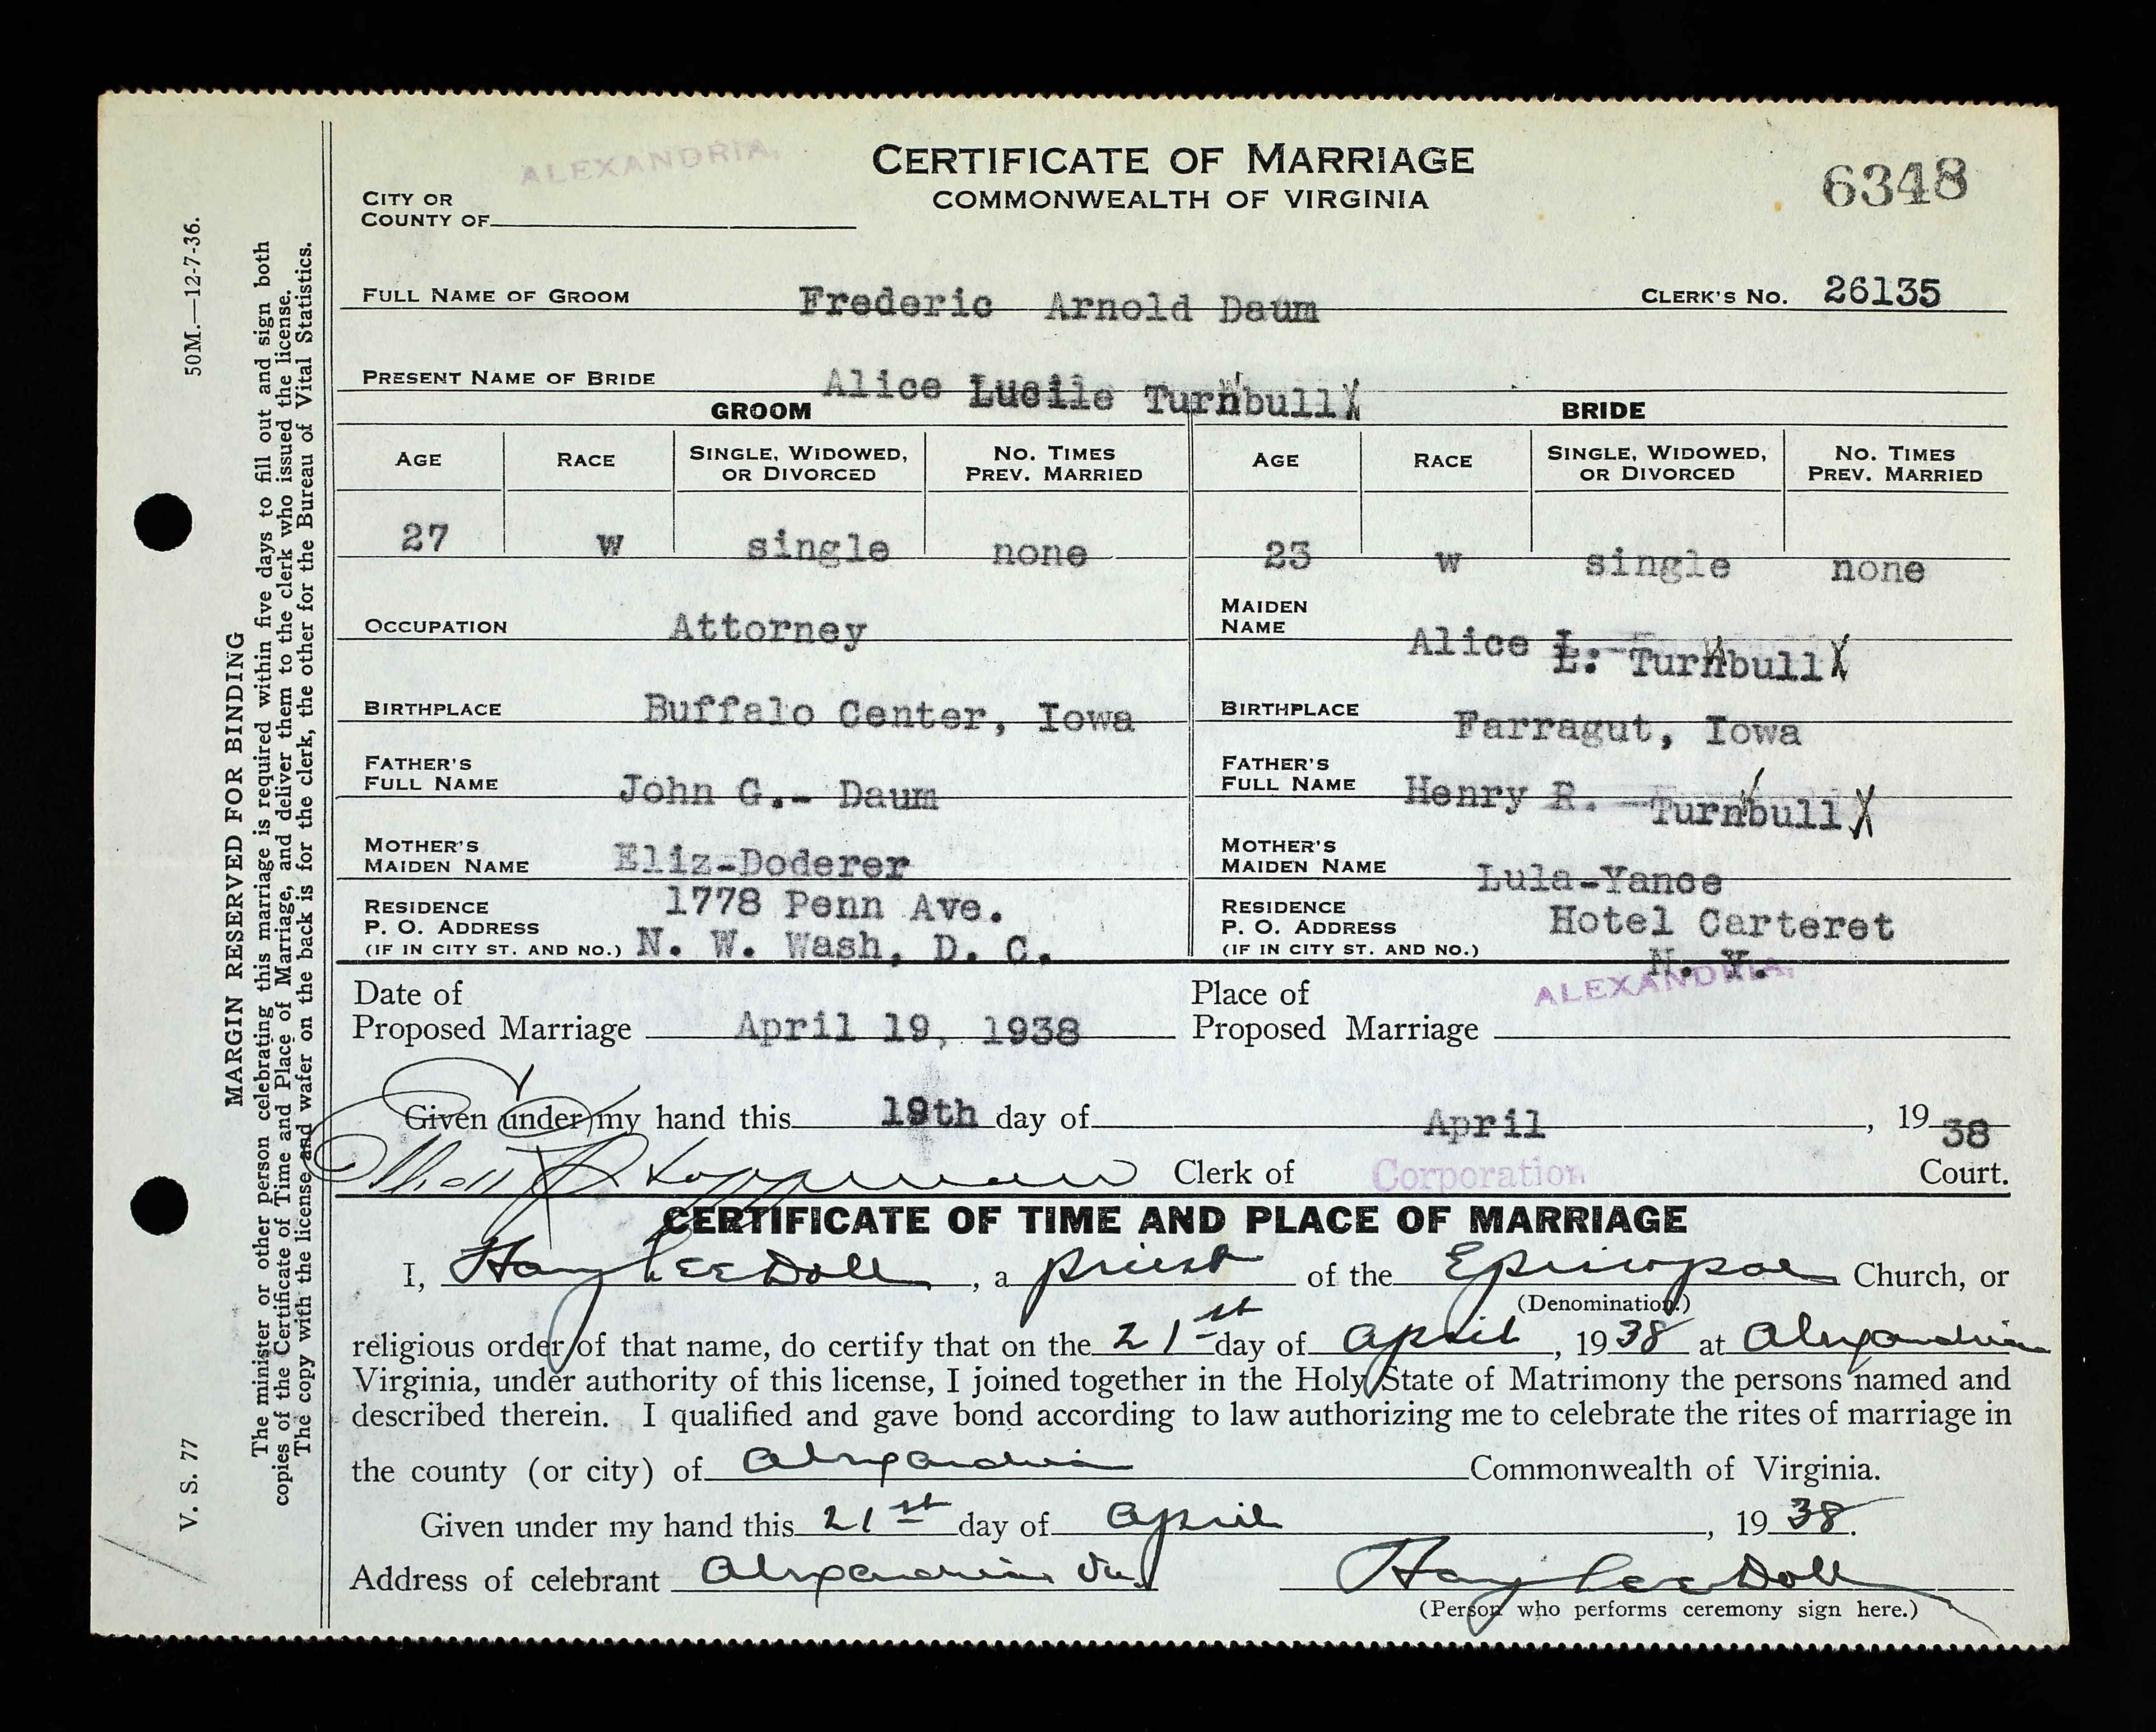 ALEXANDRIA,
CERTIFICATE OF MARRIAGE
COMMONWEALTH OF VIRGINIA
6348
CITY OR
COUNTY OF
FULL NAME OF GROOM Frederic Arnold Daum CLERK'S NO. 26135
PRESENT NAME OF BRIDE Alice Lucile Turnbull
GROOM BRIDE
AGE RACE SINGLE, WIDOWED, OR DIVORCED NO. TIMES PREV. MARRIED AGE RACE SINGLE, WIDOWED, OR DIVORCED NO. TIMES PREV. MARRIED
27 w single none 23 w single none
OCCUPATION Attorney MAIDEN NAME Alice L. Turnbull
BIRTHPLACE Buffalo Center, Iowa BIRTHPLACE Farragut, Iowa
FATHER'S FULL NAME John G.- Daum FATHER'S FULL NAME Henry R. Turnbull
MOTHER'S MAIDEN NAME Eliz-Doderer MOTHER'S MAIDEN NAME Lula-Yance
RESIDENCE 1778 Penn Ave. RESIDENCE Hotel Carteret
P. O. ADDRESS P. O. ADDRESS
(IF IN CITY ST. AND NO.) N. W. Wash, D. C. (IF IN CITY ST. AND NO.) N. Y.
Date of Proposed Marriage April 19, 1938 Place of Proposed Marriage ALEXANDRIA,
Given under my hand this 19th day of April, 1938
Clerk of Corporation Court.
CERTIFICATE OF TIME AND PLACE OF MARRIAGE
I, Harry Lee Doll, a priest of the Episcopal Church, or
(Denomination.)
religious order of that name, do certify that on the 21st day of April, 1938 at Alexandria
Virginia, under authority of this license, I joined together in the Holy State of Matrimony the persons named and
described therein. I qualified and gave bond according to law authorizing me to celebrate the rites of marriage in
the county (or city) of Alexandria Commonwealth of Virginia.
Given under my hand this 21st day of April, 1938.
Address of celebrant Alexandria Va. Harry Lee Doll
(Person who performs ceremony sign here.)
50M.—12-7-36.
MARGIN RESERVED FOR BINDING
The minister or other person celebrating this marriage is required within five days to fill out and sign both
copies of the Certificate of Time and Place of Marriage, and deliver them to the clerk who issued the license.
The copy with the license and wafer on the back is for the clerk, the other for the Bureau of Vital Statistics.
V. S. 77